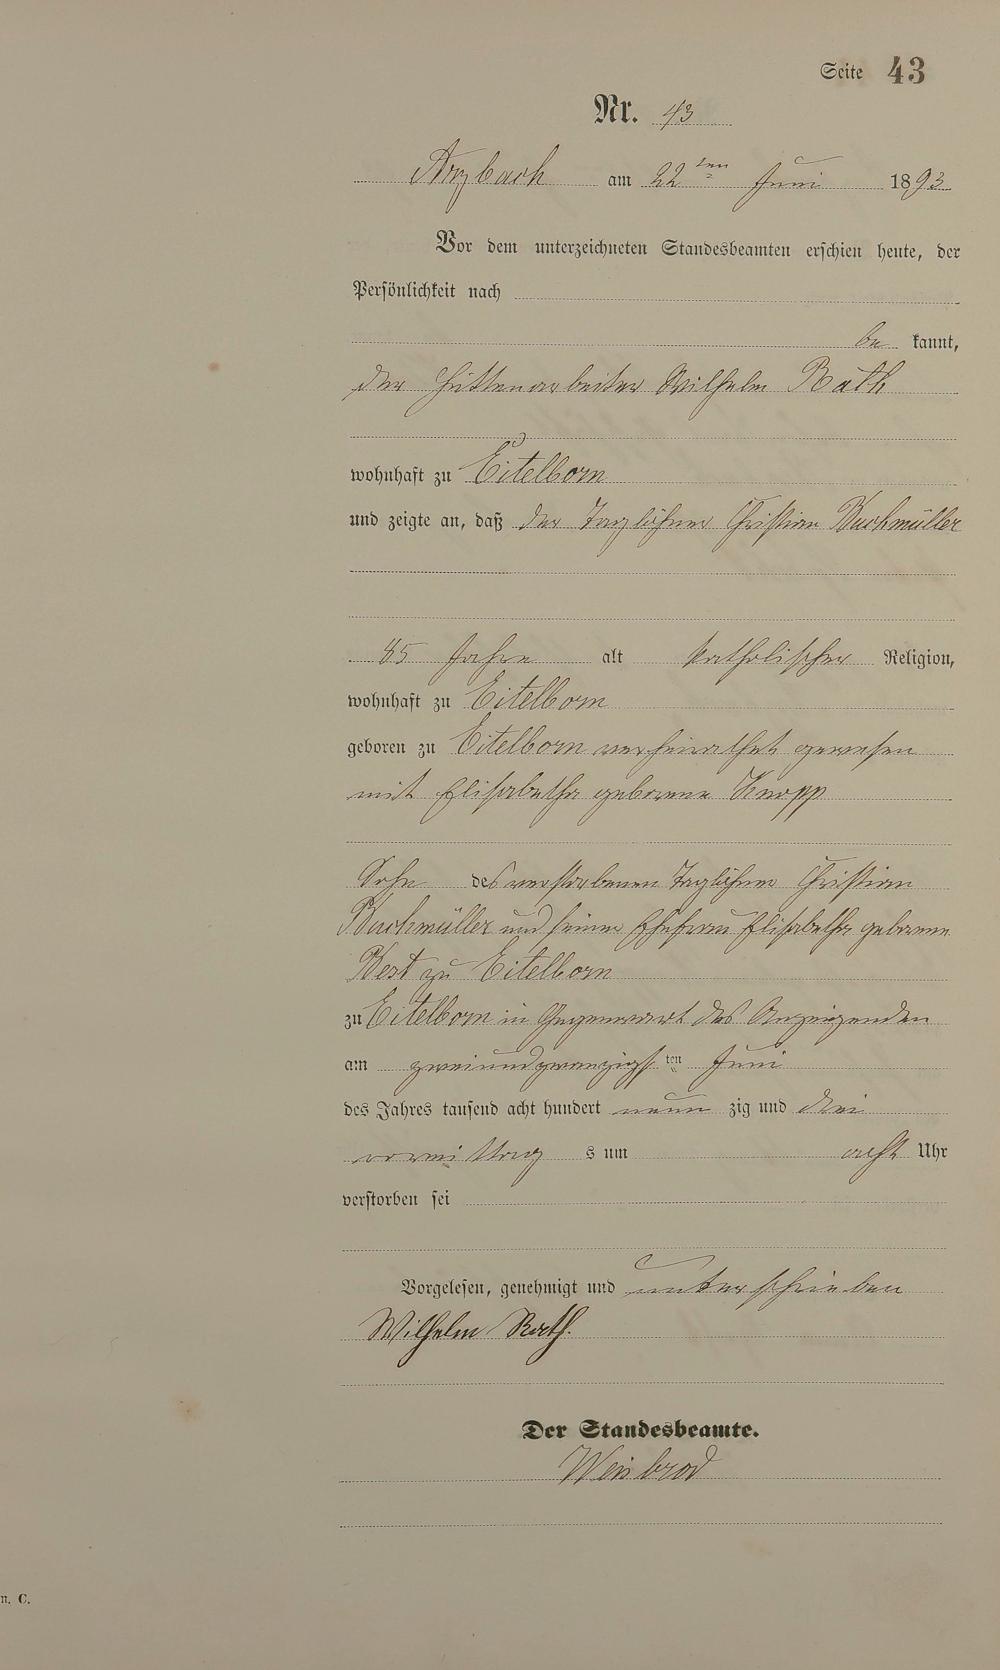 Seite 43
Nr. 43
Arzbach am 22ten Juni 1893
Vor dem unterzeichneten Standesbeamten erschien heute, der
Persönlichkeit nach
be kannt,
der Hüttenarbeiter Wilhelm Rath
wohnhaft zu Eitelborn
und zeigte an, daß der Taglöhner Christian Buchmüller
Jahre alt katholischer Religion,
wohnhaft zu Eitelborn
geboren zu Eitelborn verheirathet gewesen
mit Elisabetha geborene Knopp
Sohn des verstorbenen Taglöhner Christian
Buchmüller und seiner Ehefrau Elisabetha geborene
zu Eitelborn
zu Eitelborn in Gegenwart des Anzeigenden
am zweiundzwanzigsten Juni
des Jahres tausend acht hundert neun zig und drei
vormittag s um acht Uhr
verstorben sei
Vorgelesen, genehmigt und unterschrieben
Wilhelm Rath.
Der Standesbeamte.
Weisbrod
n. C.